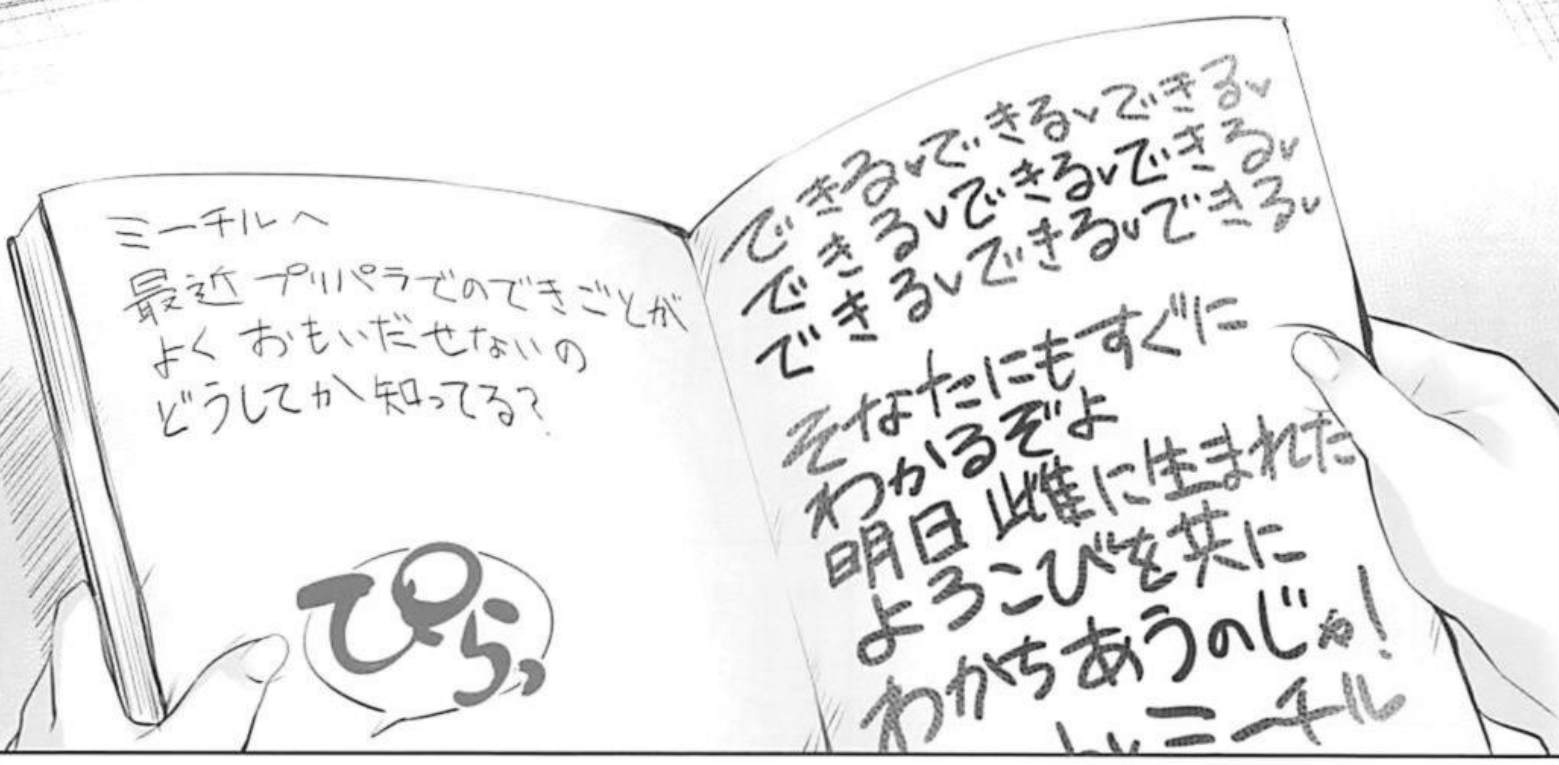 ミーチルへ
最近プリパラでのできごとが
よくおもいだせないの
どうしてか知ってる?
ぴらっ
できる♥できる♥できる♥
できる♥できる♥できる♥
できる♥できる♥できる♥
そなたにもすぐに
わかるぞよ
明日雌に生まれた
よろこびを共に
わかちあうのじゃ!
ミーチル